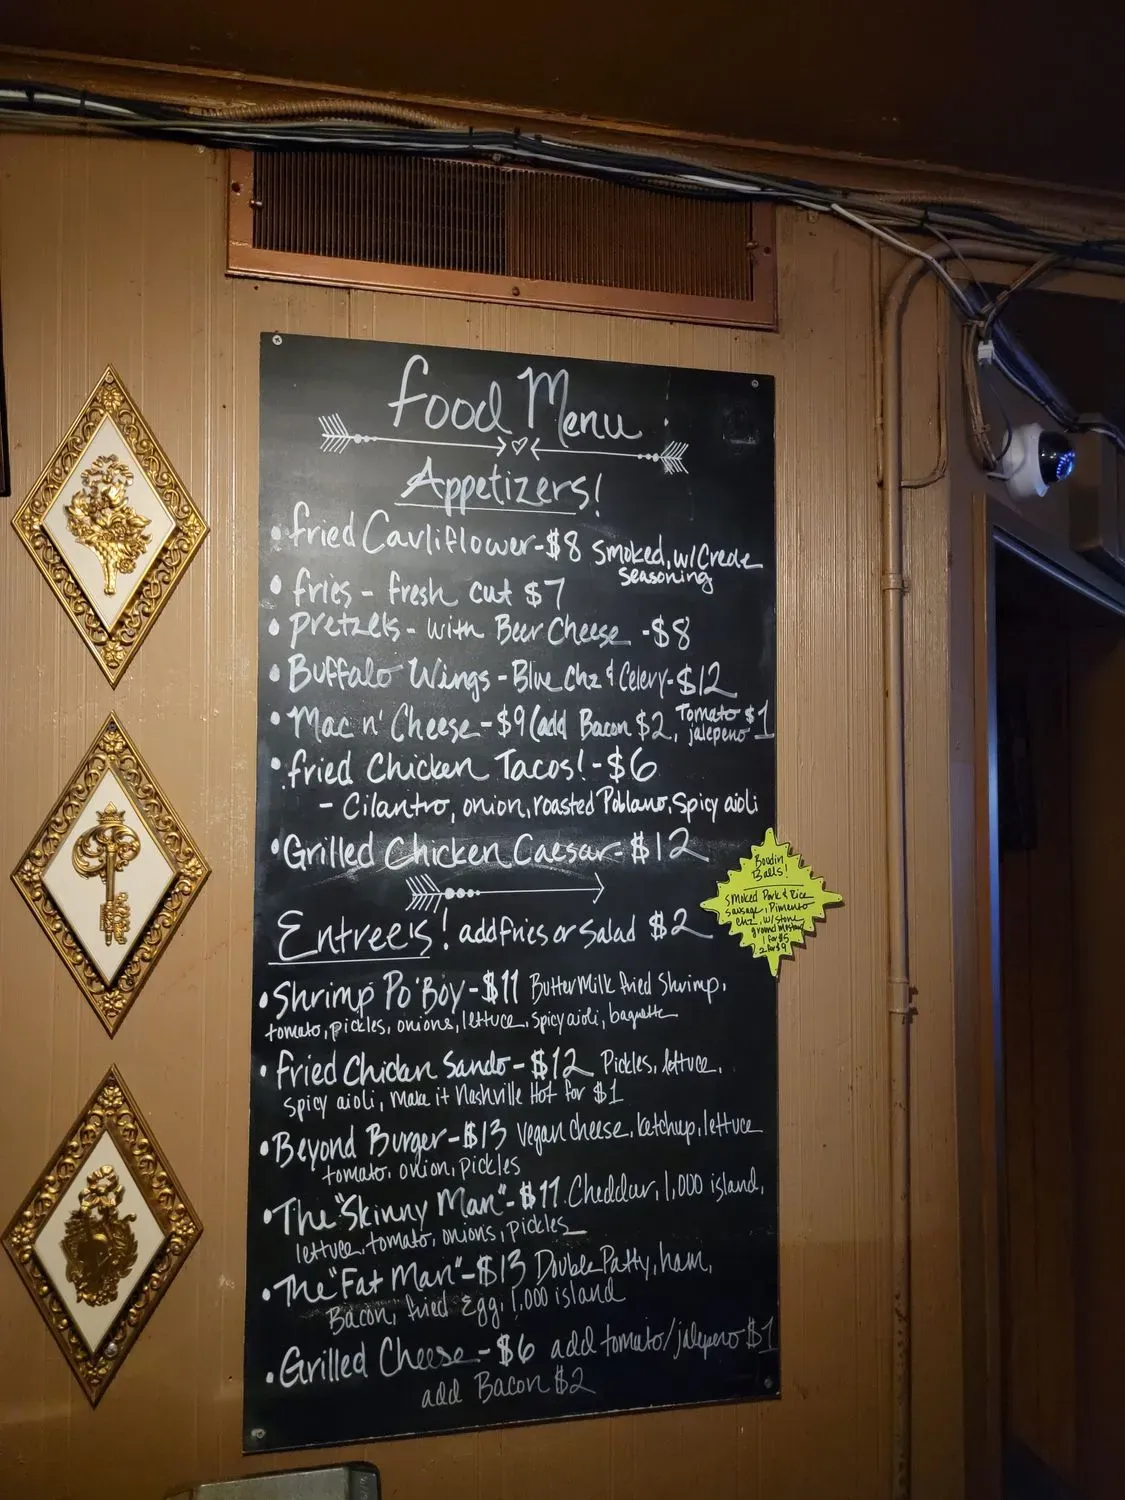 Food Menu
Appetizers!
• Fried Cauliflower - $8 Smoked, w/Creole
Seasoning
• Fries - Fresh cut $7
• Pretzels - with Beer Cheese - $8
• Buffalo Wings - Blue Chz & Celery - $12
• Mac n' Cheese - $9 (add Bacon $2, Tomato $1
jalepeno
• Fried Chicken Tacos! - $6
- Cilantro, onion, roasted Poblano, Spicy aioli
• Grilled Chicken Caesar - $12
Entree's! add fries or Salad $2
• Shrimp Po'Boy - $11 ButterMilk fried Shrimp,
tomato, pickles, onions, lettuce, spicy aioli, baguette
• Fried Chicken Sando - $12 Pickles, lettuce,
spicy aioli, Make it Nashville Hot for $1
• Beyond Burger - $13 Vegan Cheese, ketchup, lettuce
tomato, onion, pickles
• The "Skinny Man" - $11 Cheddar, 1,000 island,
lettuce, tomato, onions, pickles
• The "Fat Man" - $13 Double Patty, ham,
Bacon, fried Egg, 1,000 island
• Grilled Cheese - $6 add tomato/jalepeno $1
add Bacon $2
Boudin
Balls!
Smoked Pork & Rice
Sausage, Pimento
chz, w/ stone
ground Mustard
1 for $5
2 for $9